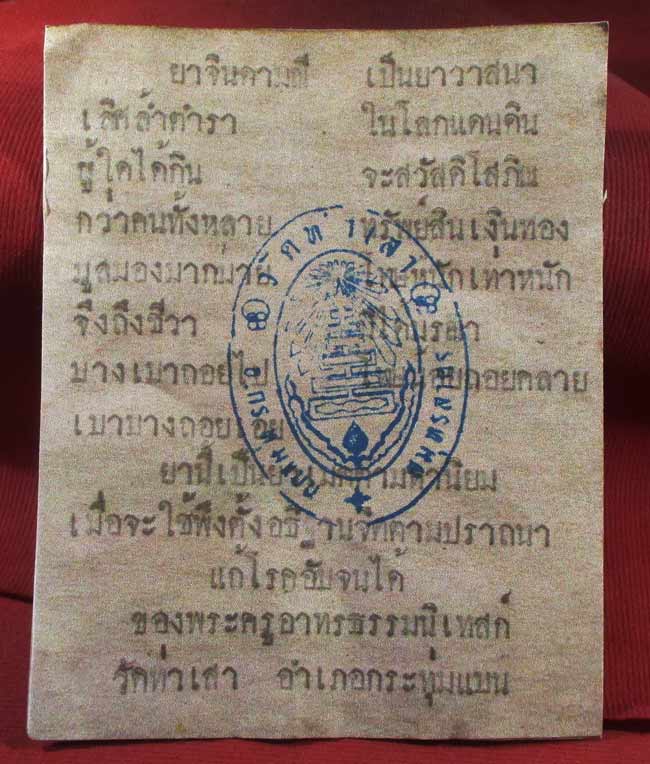 ยาจินดามณี เป็นยาวาสนา
เลิศล้ำตำรา ในโลกแดนดิน
ผู้ใดได้กิน จะสวัสดิโสภิณ
กว่าคนทั้งหลาย ทรัพย์สินเงินทอง
มูลมองมากมาย หนักเท่าหนัก
จึงถึงชีวา
บางเบาถอยไป ถอยคลาย
เบาบาง
ยานี้เป็นยา
เมื่อจะใช้พึงตั้งอธิ จิตตามปราถนา
แก้โรคอับจนได้
ของพระครูอาทรธรรมนิเทสก์
วัดท่าเสา อำเภอกระทุ่มแบน
วัดท่าเสา
อ.กระทุ่มแบน
จ.สมุทรสาคร